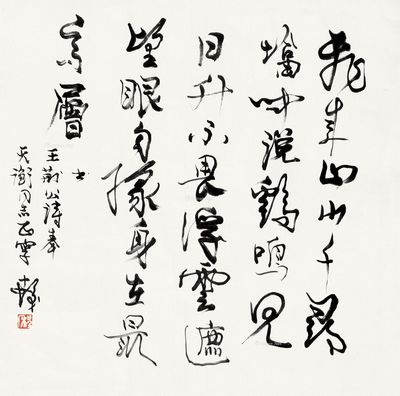 飛来山上千尋
塔聞说鷄鳴見
日升不畏浮雲遮
望眼自緣身在最
高層
书
王荆公詩奉
同志正字